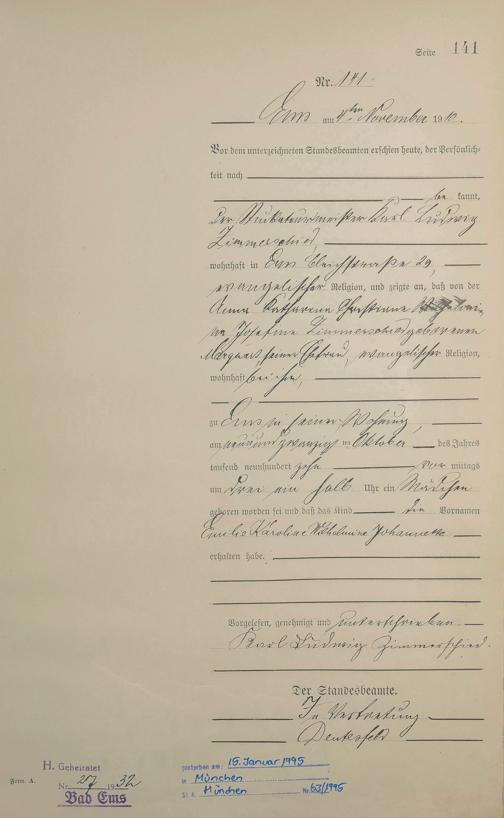 Seite 141
Nr. 141.
Ems am 4ten November 1910.
Vor dem unterzeichneten Standesbeamten erschien heute, der Persönlich-
keit nach
be kannt,
der Stukateurmeister Karl Ludwig
Zimmerschied,
wohnhaft in Ems Bleichstraße 29,
evangelischer Religion, und zeigte an, daß von der
Anna Katharina Christiane
Josefine Zimmerschied geborenen
seiner Ehefrau, evangelischer Religion,
wohnhaft bei ihm,
zu Ems in seiner Wohnung,
am neunundzwanzigsten Oktober des Jahres
tausend neunhundert zehn vor mittags
um drei ein halb Uhr ein Mädchen
geboren worden sei und daß das Kind die Vornamen
Emilie Karoline Wilhelmine Johannette
erhalten habe.
Vorgelesen, genehmigt und unterschrieben
Karl Ludwig Zimmerschied.
Der Standesbeamte.
In Vertretung
Form. A.
H. Geheiratet
Nr. 1932
Bad Ems
gestorben am: 15. Januar 1995
in München
St. A. München Nr. 63/1995